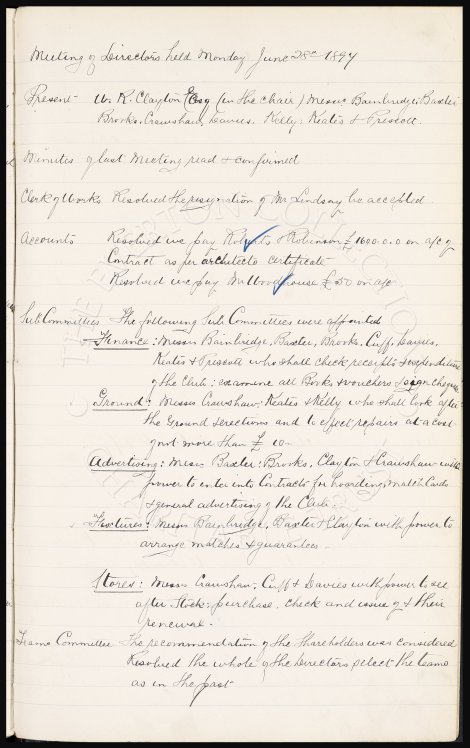 Meeting of Directors held Monday June 28th 1897
Present W. R. Clayton Esq (in the chair) Messrs Bainbridge: Baxter
Brooks, Crawshaw, Davies. Kelly: Keates & Prescott.
Minutes of last Meeting read & confirmed
Clerk of Works Resolved the resignation of Mr Lindsay be accepted.
Accounts Resolved we pay Roberts & Robinson £1600.0.0 on a/c of
Contract as per architects certificate
Resolved we pay Mr Woodhouse £50 on a/c
Sub Committees The following Sub Committees were appointed
Finance: Messrs Bainbridge, Baxter, Brooks, Cuff, Davies,
Keates & Prescott who shall check receipts & expenditure
of the Club: examine all Books & vouchers & sign cheques
Ground: Messrs Crawshaw, Keates & Kelly who shall look after
the Ground & erections and to effect repairs at a cost
of not more than £10-
Advertising: Messrs Baxter: Brooks, Clayton & Crawshaw with
power to enter into Contracts for hoarding, Match Cards
& general advertising of the Club.
Fixtures: Messrs Bainbridge, Baxter & Clayton with power to
arrange matches & guarantees.
Stores: Messrs Crawshaw, Cuff & Davies with power to see
after Stock: purchase, check and issue of & their
renewal.
Teams Committee The recommendation of the Shareholders was considered
Resolved the whole of the Directors select the teams
as in the past
THE EVERTON COLLECTION